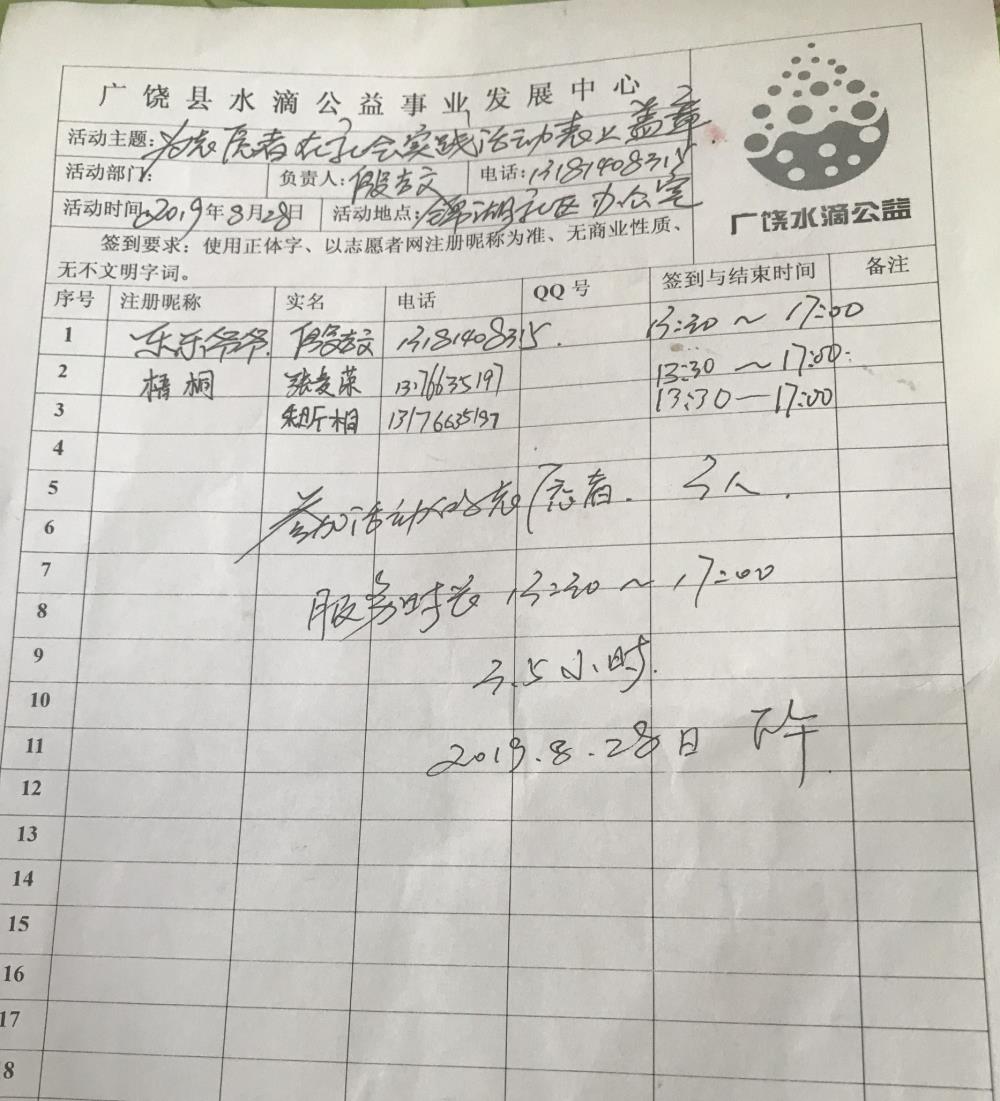 广饶县水滴公益事业发展中心
活动主题:为志愿者在社会实践活动表上盖章
活动部门: 负责人: 电话:13181408315
活动时间:2019年8月28日 活动地点:锦湖社区办公室
广饶水滴公益
签到要求:使用正体字、以志愿者网注册昵称为准、无商业性质、
无不文明字词。
序号 注册昵称 实名 电话 QQ号 签到与结束时间 备注
1 乐乐爷爷 13181408315. 13:30~17:00
2 梧桐 张爱荣 13176635197 13:30~17:00
3 13176635197 13:30—17:00
4
5
参加活动的志愿者. 3人.
6
7
8 服务时长13:30~17:00
9
3.5小时.
10
11 2019.8.28日 下午
12
13
14
15
16
17
8